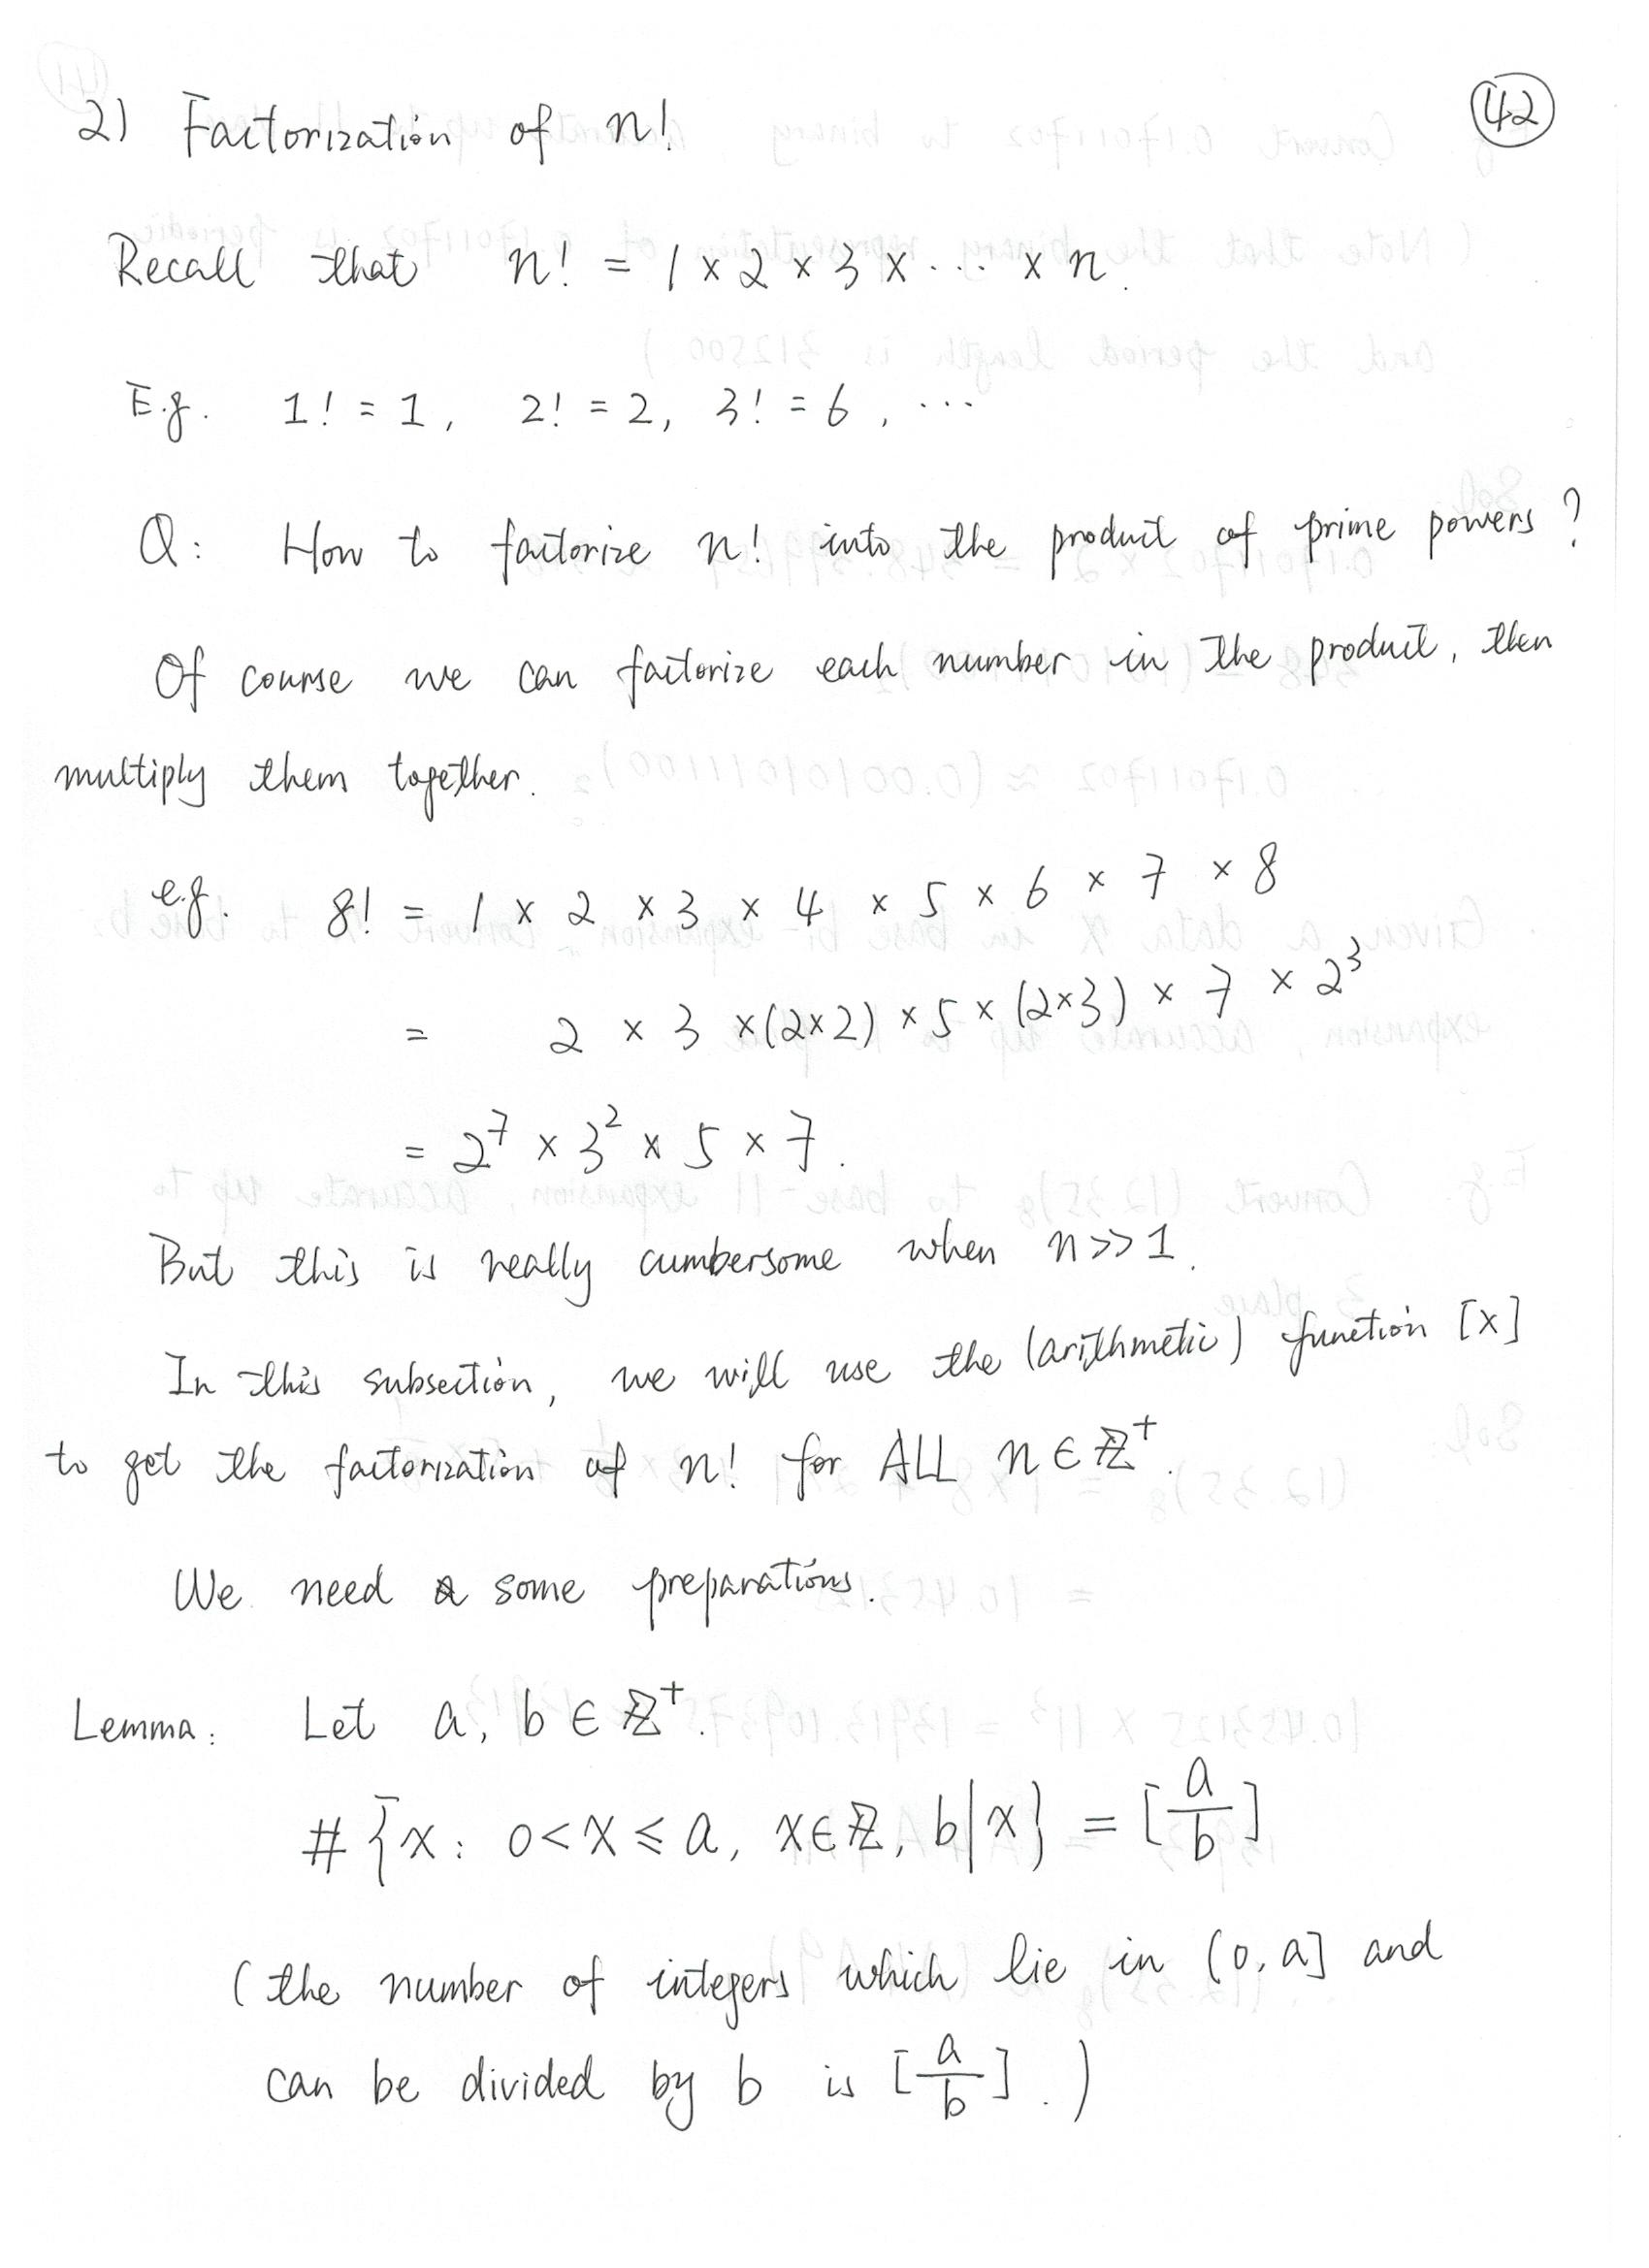 42
2) Factorization of n!
Recall that n! = 1 × 2 × 3 × ··· × n.
E.g. 1! = 1, 2! = 2, 3! = 6, ···
Q: How to factorize n! into the product of prime powers?
Of course we can factorize each number in the product, then
multiply them together.
e.g. 8! = 1 × 2 × 3 × 4 × 5 × 6 × 7 × 8
= 2 × 3 × (2×2) × 5 × (2×3) × 7 × 2³
= 2⁷ × 3² × 5 × 7.
But this is really cumbersome when n >> 1.
In this subsection, we will use the (arithmetic) function [x]
to get the factorization of n! for ALL n ∈ ℤ⁺.
We need some preparations.
Lemma: Let a, b ∈ ℤ⁺.
#{x: 0 < x ≤ a, x ∈ ℤ, b|x} = [a/b]
(the number of integers which lie in (0, a] and
can be divided by b is [a/b].)